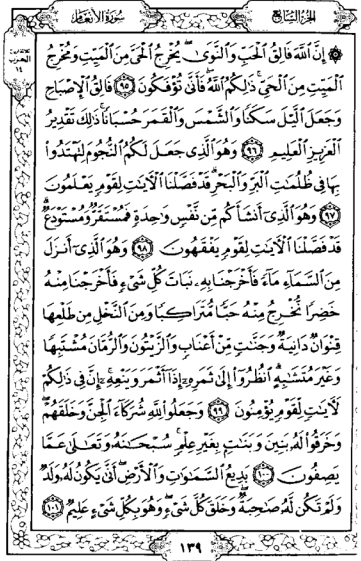 الجزء السابع
سورة الأنعام
الحزب
١٤
۞ إِنَّ ٱللَّهَ فَالِقُ ٱلْحَبِّ وَٱلنَّوَىٰ ۖ يُخْرِجُ ٱلْحَىَّ مِنَ ٱلْمَيِّتِ وَمُخْرِجُ
ٱلْمَيِّتِ مِنَ ٱلْحَىِّ ۚ ذَٰلِكُمُ ٱللَّهُ ۖ فَأَنَّىٰ تُؤْفَكُونَ ٩٥ فَالِقُ ٱلْإِصْبَاحِ
وَجَعَلَ ٱلَّيْلَ سَكَنًا وَٱلشَّمْسَ وَٱلْقَمَرَ حُسْبَانًا ۚ ذَٰلِكَ تَقْدِيرُ
ٱلْعَزِيزِ ٱلْعَلِيمِ ٩٦ وَهُوَ ٱلَّذِى جَعَلَ لَكُمُ ٱلنُّجُومَ لِتَهْتَدُوا۟
بِهَا فِى ظُلُمَٰتِ ٱلْبَرِّ وَٱلْبَحْرِ ۗ قَدْ فَصَّلْنَا ٱلْـَٔايَٰتِ لِقَوْمٍ يَعْلَمُونَ
٩٧ وَهُوَ ٱلَّذِىٓ أَنشَأَكُم مِّن نَّفْسٍ وَٰحِدَةٍ فَمُسْتَقَرٌّ وَمُسْتَوْدَعٌ ۗ
قَدْ فَصَّلْنَا ٱلْـَٔايَٰتِ لِقَوْمٍ يَفْقَهُونَ ٩٨ وَهُوَ ٱلَّذِىٓ أَنزَلَ
مِنَ ٱلسَّمَآءِ مَآءً فَأَخْرَجْنَا بِهِۦ نَبَاتَ كُلِّ شَىْءٍ فَأَخْرَجْنَا مِنْهُ
خَضِرًا نُّخْرِجُ مِنْهُ حَبًّا مُّتَرَاكِبًا وَمِنَ ٱلنَّخْلِ مِن طَلْعِهَا
قِنْوَانٌ دَانِيَةٌ وَجَنَّٰتٍ مِّنْ أَعْنَابٍ وَٱلزَّيْتُونَ وَٱلرُّمَّانَ مُشْتَبِهًا
وَغَيْرَ مُتَشَٰبِهٍ ۗ ٱنظُرُوٓا۟ إِلَىٰ ثَمَرِهِۦٓ إِذَآ أَثْمَرَ وَيَنْعِهِۦٓ ۚ إِنَّ فِى ذَٰلِكُمْ
لَـَٔايَٰتٍ لِّقَوْمٍ يُؤْمِنُونَ ٩٩ وَجَعَلُوا۟ لِلَّهِ شُرَكَآءَ ٱلْجِنَّ وَخَلَقَهُمْ ۖ
وَخَرَقُوا۟ لَهُۥ بَنِينَ وَبَنَٰتٍۭ بِغَيْرِ عِلْمٍ ۚ سُبْحَٰنَهُۥ وَتَعَٰلَىٰ عَمَّا
يَصِفُونَ ١٠٠ بَدِيعُ ٱلسَّمَٰوَٰتِ وَٱلْأَرْضِ ۖ أَنَّىٰ يَكُونُ لَهُۥ وَلَدٌ
وَلَمْ تَكُن لَّهُۥ صَٰحِبَةٌ ۖ وَخَلَقَ كُلَّ شَىْءٍ ۖ وَهُوَ بِكُلِّ شَىْءٍ عَلِيمٌ ١٠١
١٣٩